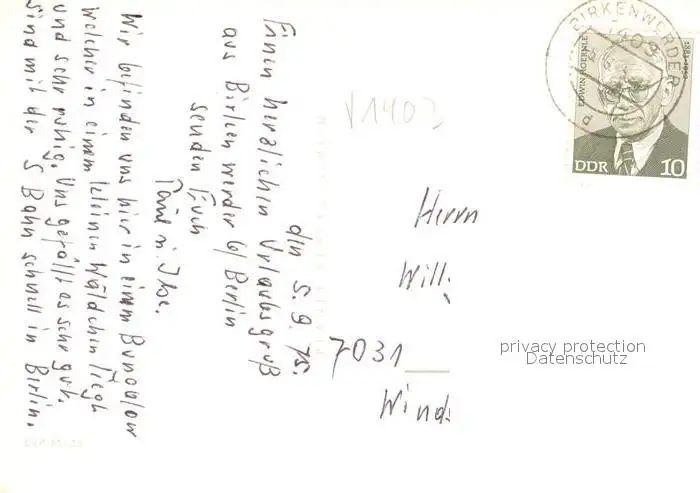 den 5. 9. 75.
Einen herzlichen Urlaubsgruß
aus Birkenwerder b/ Berlin
senden Euch
u. Ilse.
Wir befinden uns hier in einem Bungalow
welcher in einem kleinen Wäldchen liegt
und sehr ruhig. Uns gefällt es sehr gut.
Sind mit der S Bahn schnell in Berlin.
V1403
Herrn
Will
7031
Wind
BIRKENWERDER
1403
EDWIN HOERNLE
1883-1952
DDR 10
privacy protection
Datenschutz